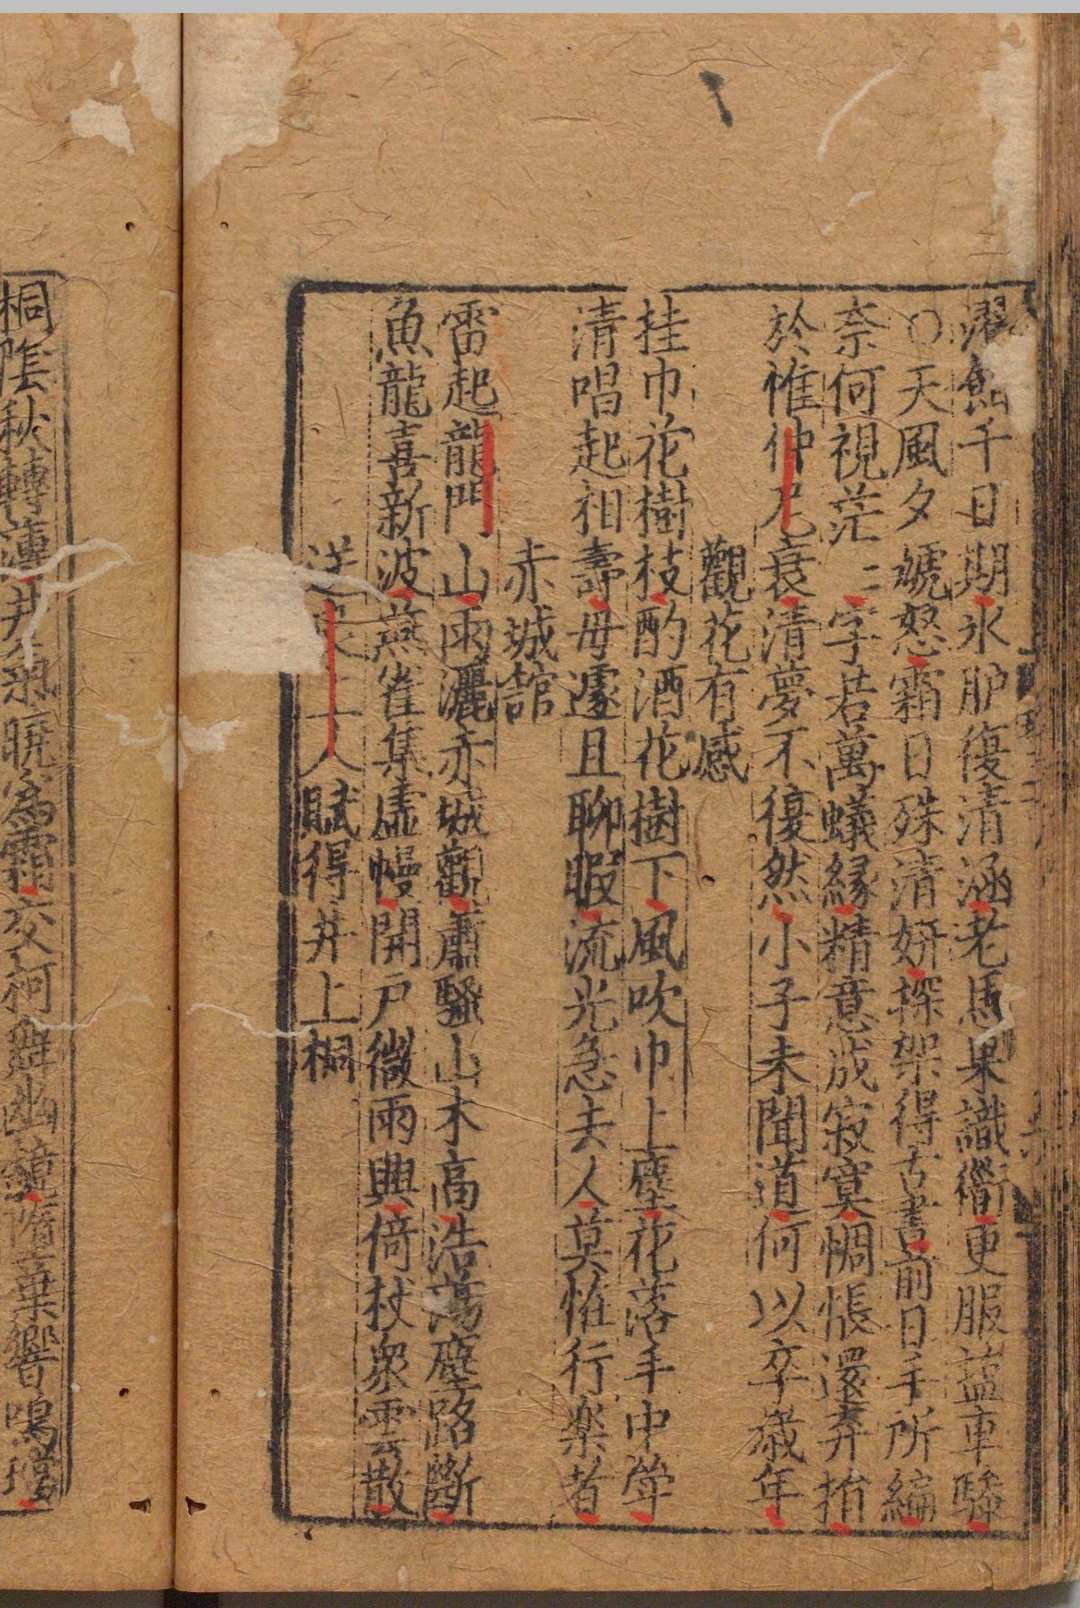 濯蝕千日期氷胪復清涵老馬果識衢更服鹽車驂
○天風夕號怒霜日殊清妍探架得古書前日手所編
奈何視茫〻字若萬蟻緣精意成寂寞惆悵還弃捐
於惟仲尼衰清夢不復然小子未聞道何以卒歲年
觀花有感
挂巾花樹枝酌酒花樹下風吹巾上塵花落手中斝
清唱起相壽毋遽且聊暇流光急去人莫惟行楽者
赤城館
雷起龍門山雨灑赤城觀蕭騷山木高浩蕩塵路斷
魚龍喜新波燕雀集虚幔開戸微雨興倚杖衆雲散
送上人賦得井上桐
桐陰秋轉薄井氣暁為霜交柯舞幽鏡隋葉響鳴璫